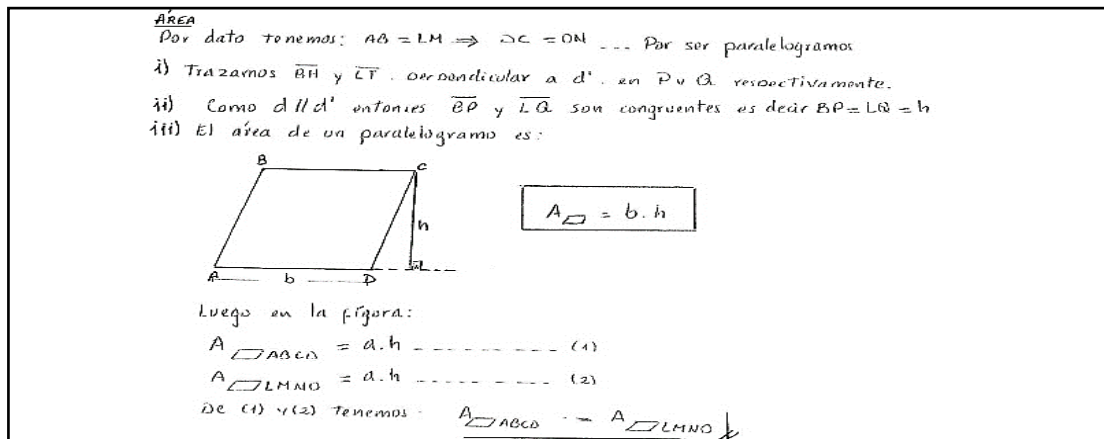 ÁREA
Por dato tenemos: AB = LM ⇒ DC = ON ... Por ser paralelogramos
i) Trazamos BH y LT . perpendicular a d'. en P y Q respectivamente.
ii) Como d // d' entonces BP y LQ son congruentes es decir BP = LQ = h
iii) El área de un paralelogramo es:
B C
h
A▱ = b.h
A b D
Luego en la figura:
A▱ABCD = a.h ------------- (1)
A▱LMNO = a.h ------------- (2)
De (1) y (2) Tenemos · A▱ABCD = A▱LMNO